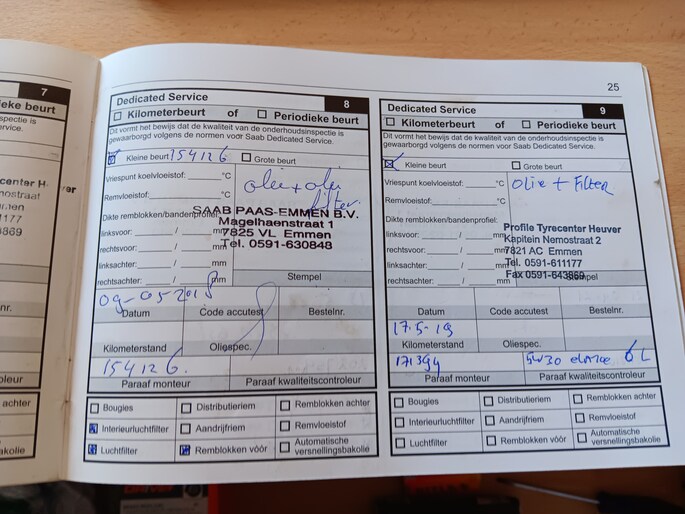 25
7
ieke beurt
ectie is
ervice.
ecenter H-
mostraat
men
1177
3869
er
nr.
oleur
achter
akolie
Dedicated Service 8
Kilometerbeurt of Periodieke beurt
Dit vormt het bewijs dat de kwaliteit van de onderhoudsinspectie is
gewaarborgd volgens de normen voor Saab Dedicated Service.
Kleine beurt 154126 Grote beurt
Vriespunt koelvloeistof: °C
olie + olie
filter.
Remvloeistof: °C
Dikte remblokken/bandenprofiel:
SAAB PAAS-EMMEN B.V.
Magelhaenstraat 1
7825 VL Emmen
Tel. 0591-630848
linksvoor: / mm
rechtsvoor: / mm
linksachter: / mm
rechtsachter: / mm
Stempel
09-05-2018
Datum Code accutest Bestelnr.
Kilometerstand Oliespec.
154126.
Paraaf monteur Paraaf kwaliteitscontroleur
Bougies Distributieriem Remblokken achter
Interieurluchtfilter Aandrijfriem Remvloeistof
Luchtfilter Remblokken vóór Automatische
versnellingsbakolie
Dedicated Service 9
Kilometerbeurt of Periodieke beurt
Dit vormt het bewijs dat de kwaliteit van de onderhoudsinspectie is
gewaarborgd volgens de normen voor Saab Dedicated Service.
Kleine beurt Grote beurt
Vriespunt koelvloeistof: °C
olie + Filter
Remvloeistof: °C
Dikte remblokken/bandenprofiel:
Profile Tyrecenter Heuver
Kapitein Nemostraat 2
7821 AC Emmen
Tel. 0591-611177
Fax 0591-643869
linksvoor: / mm
rechtsvoor: / mm
linksachter: / mm
rechtsachter: / mm
Stempel
Datum Code accutest Bestelnr.
17-5-19
Kilometerstand Oliespec.
171394 5W30 6L
Paraaf monteur Paraaf kwaliteitscontroleur
Bougies Distributieriem Remblokken achter
Interieurluchtfilter Aandrijfriem Remvloeistof
Luchtfilter Remblokken vóór Automatische
versnellingsbakolie